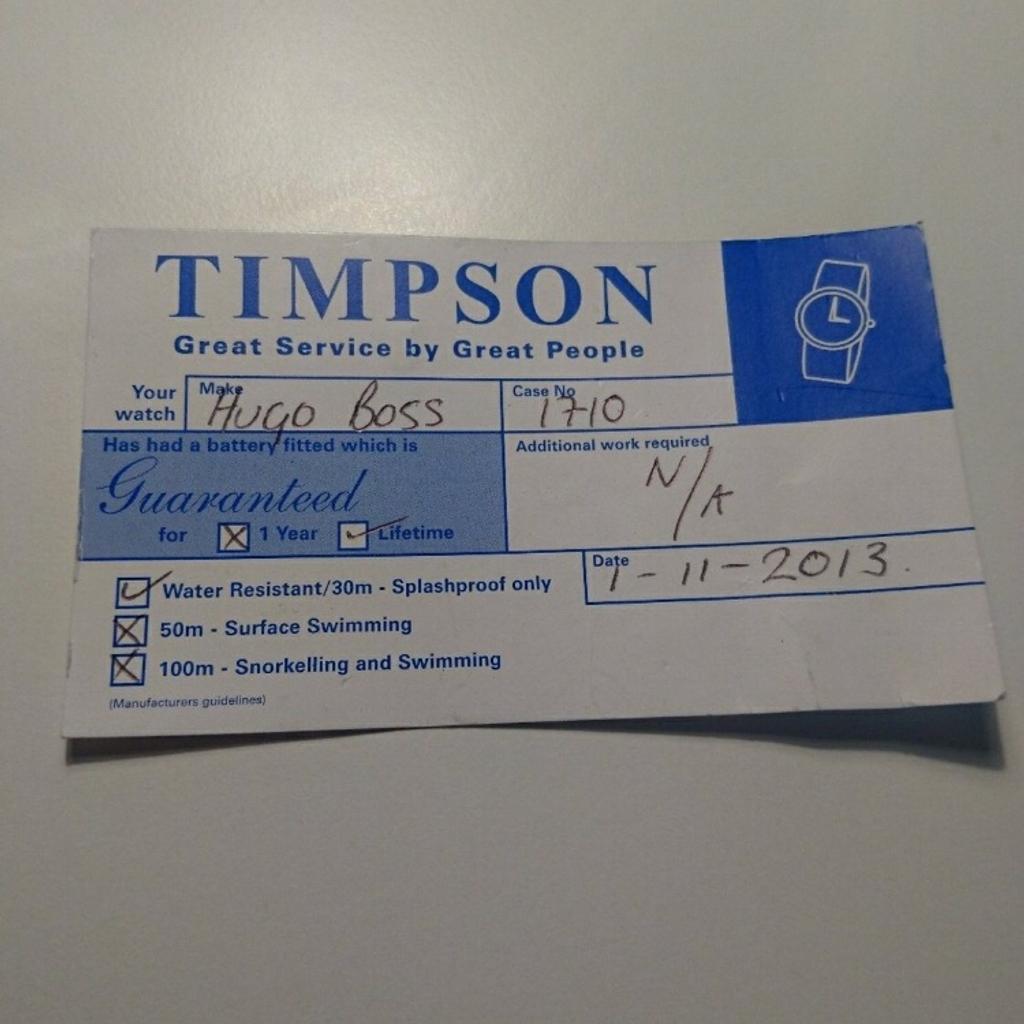 TIMPSON
Great Service by Great People
Your watch
Make
HUGO BOSS
Case No
1710
Has had a battery fitted which is
Guaranteed
for 1 Year Lifetime
Additional work required
N/A
Date
1-11-2013.
Water Resistant/30m - Splashproof only
50m - Surface Swimming
100m - Snorkelling and Swimming
(Manufacturers guidelines)